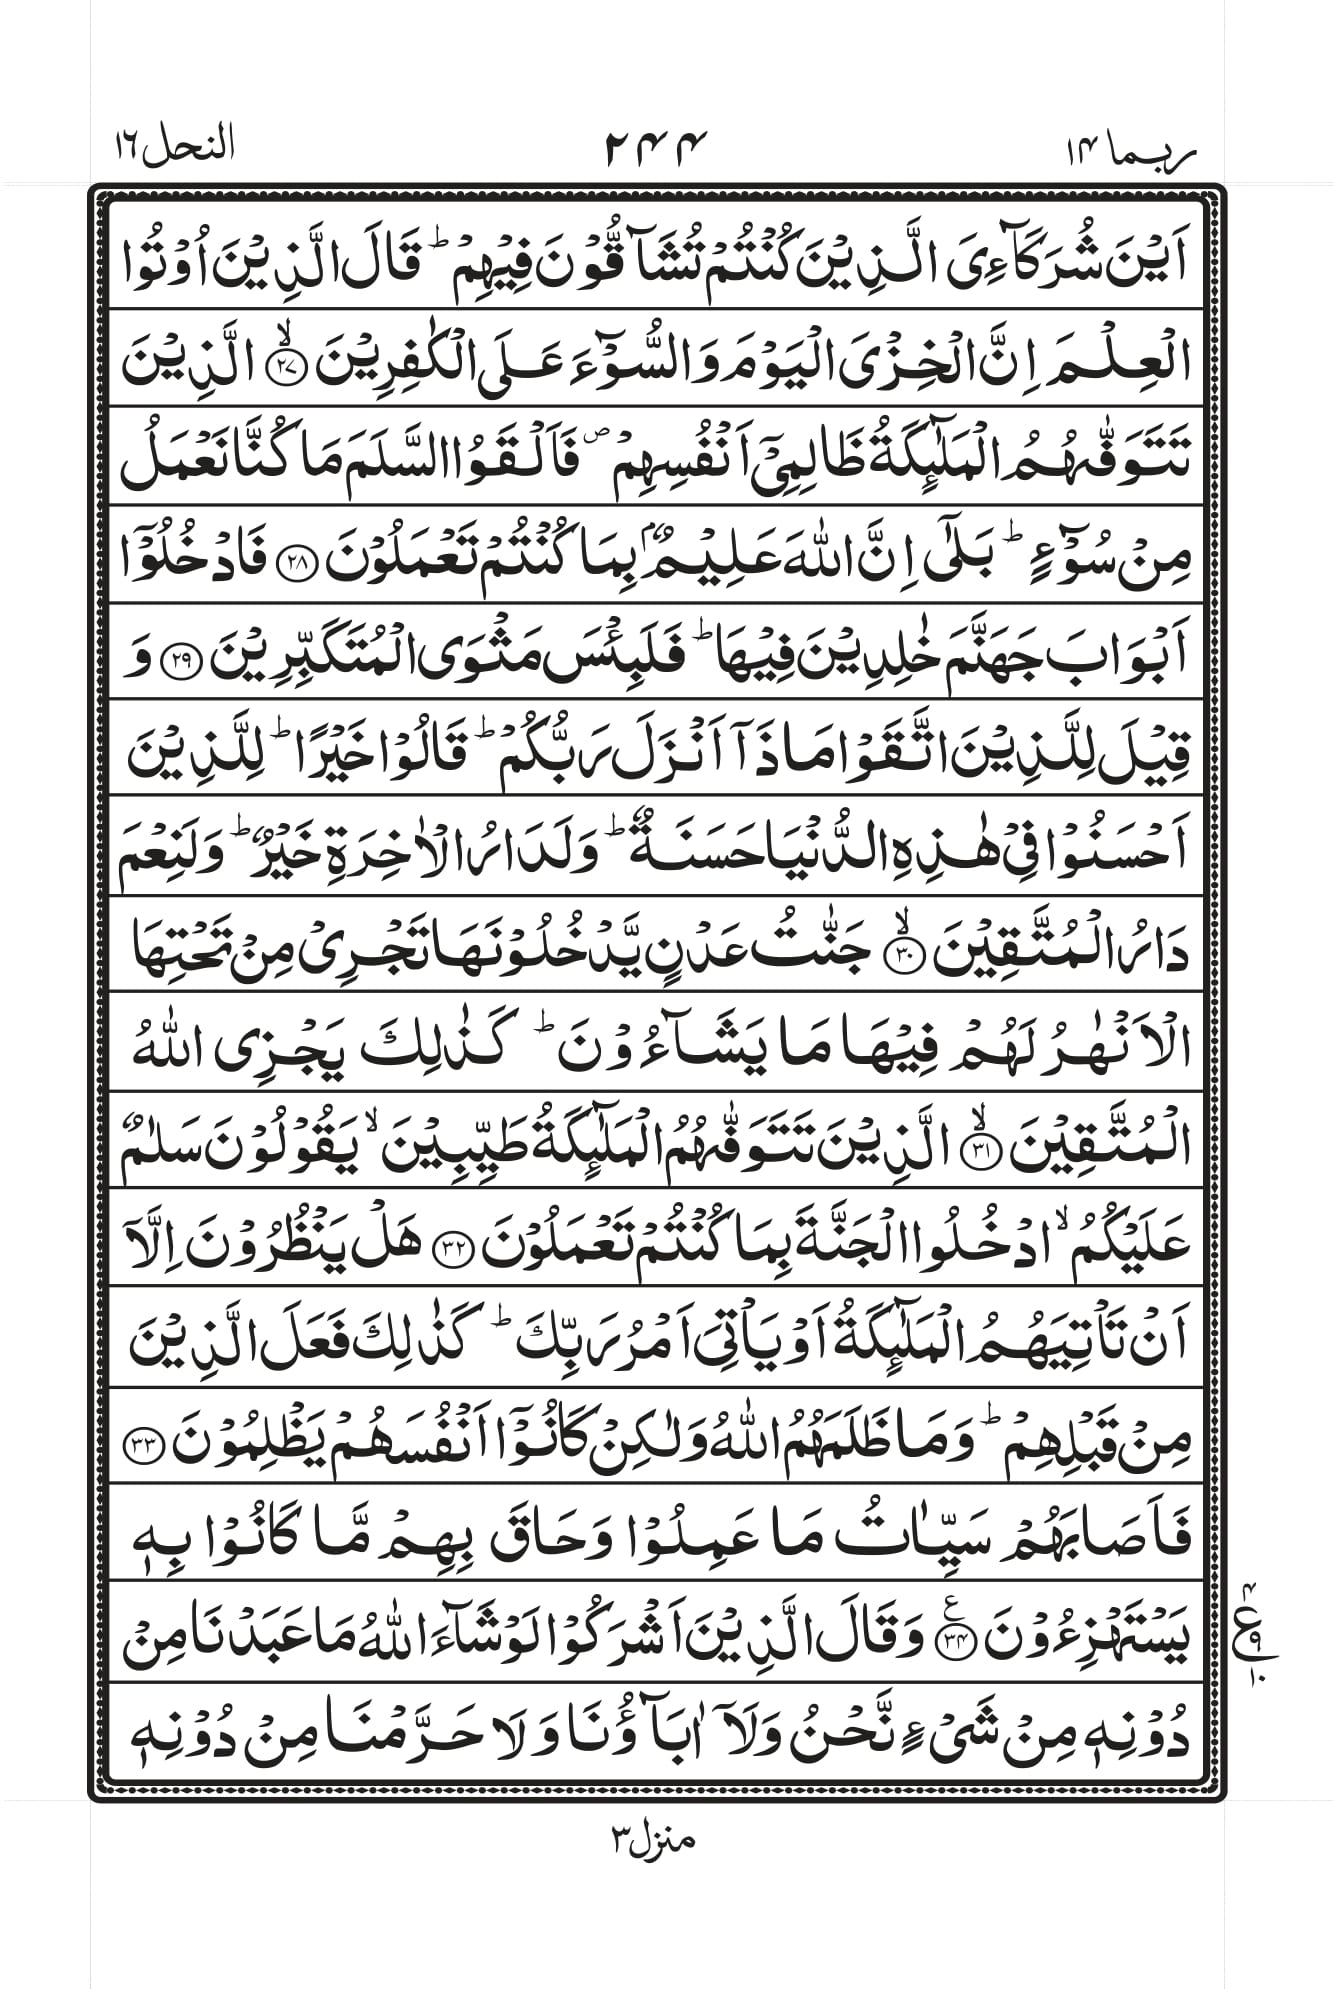 ربما ۱۴
۲۴۴
النحل ۱۶
اَیْنَ شُرَكَآءِیَ الَّذِیْنَ كُنْتُمْ تُشَآقُّوْنَ فِیْهِمْ ؕ قَالَ الَّذِیْنَ اُوْتُوا
الْعِلْمَ اِنَّ الْخِزْیَ الْیَوْمَ وَالسُّوْٓءَ عَلَی الْكٰفِرِیْنَ ۙ﴿۲۷﴾ الَّذِیْنَ
تَتَوَفّٰىهُمُ الْمَلٰٓئِكَةُ ظَالِمِیْۤ اَنْفُسِهِمْ ۪ فَاَلْقَوُا السَّلَمَ مَا كُنَّا نَعْمَلُ
مِنْ سُوْٓءٍ ؕ بَلٰۤی اِنَّ اللّٰهَ عَلِیْمٌۢ بِمَا كُنْتُمْ تَعْمَلُوْنَ ﴿۲۸﴾ فَادْخُلُوْۤا
اَبْوَابَ جَهَنَّمَ خٰلِدِیْنَ فِیْهَا ؕ فَلَبِئْسَ مَثْوَی الْمُتَكَبِّرِیْنَ ﴿۲۹﴾ وَ
قِیْلَ لِلَّذِیْنَ اتَّقَوْا مَاذَاۤ اَنْزَلَ رَبُّكُمْ ؕ قَالُوْا خَیْرًا ؕ لِلَّذِیْنَ
اَحْسَنُوْا فِیْ هٰذِهِ الدُّنْیَا حَسَنَةٌ ؕ وَلَدَارُ الْاٰخِرَةِ خَیْرٌ ؕ وَلَنِعْمَ
دَارُ الْمُتَّقِیْنَ ۙ﴿۳۰﴾ جَنّٰتُ عَدْنٍ یَّدْخُلُوْنَهَا تَجْرِیْ مِنْ تَحْتِهَا
الْاَنْهٰرُ لَهُمْ فِیْهَا مَا یَشَآءُوْنَ ؕ كَذٰلِكَ یَجْزِی اللّٰهُ
الْمُتَّقِیْنَ ۙ﴿۳۱﴾ الَّذِیْنَ تَتَوَفّٰىهُمُ الْمَلٰٓئِكَةُ طَیِّبِیْنَ ۙ یَقُوْلُوْنَ سَلٰمٌ
عَلَیْكُمُ ۙ ادْخُلُوا الْجَنَّةَ بِمَا كُنْتُمْ تَعْمَلُوْنَ ﴿۳۲﴾ هَلْ یَنْظُرُوْنَ اِلَّاۤ
اَنْ تَاْتِیَهُمُ الْمَلٰٓئِكَةُ اَوْ یَاْتِیَ اَمْرُ رَبِّكَ ؕ كَذٰلِكَ فَعَلَ الَّذِیْنَ
مِنْ قَبْلِهِمْ ؕ وَمَا ظَلَمَهُمُ اللّٰهُ وَلٰكِنْ كَانُوْۤا اَنْفُسَهُمْ یَظْلِمُوْنَ ﴿۳۳﴾
فَاَصَابَهُمْ سَیِّاٰتُ مَا عَمِلُوْا وَحَاقَ بِهِمْ مَّا كَانُوْا بِهٖ
یَسْتَهْزِءُوْنَ ﴿۳۴﴾ع وَقَالَ الَّذِیْنَ اَشْرَكُوْا لَوْ شَآءَ اللّٰهُ مَا عَبَدْنَا مِنْ
۴ ع ۹ ۱۰
دُوْنِهٖ مِنْ شَیْءٍ نَّحْنُ وَلَاۤ اٰبَآؤُنَا وَلَا حَرَّمْنَا مِنْ دُوْنِهٖ
منزل ۳